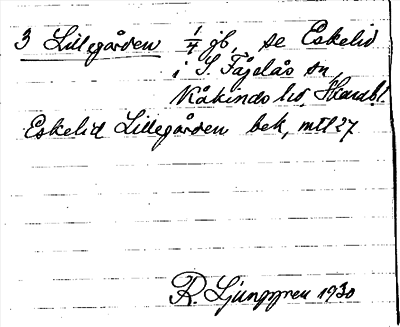 3 Lillegården 1/4 gb, se Eskelid
i S. Fågelås sn,
Kåkinds hd, Skarabl.
Eskelid Lillegården bek, mtl 27
R. Ljunggren 1930